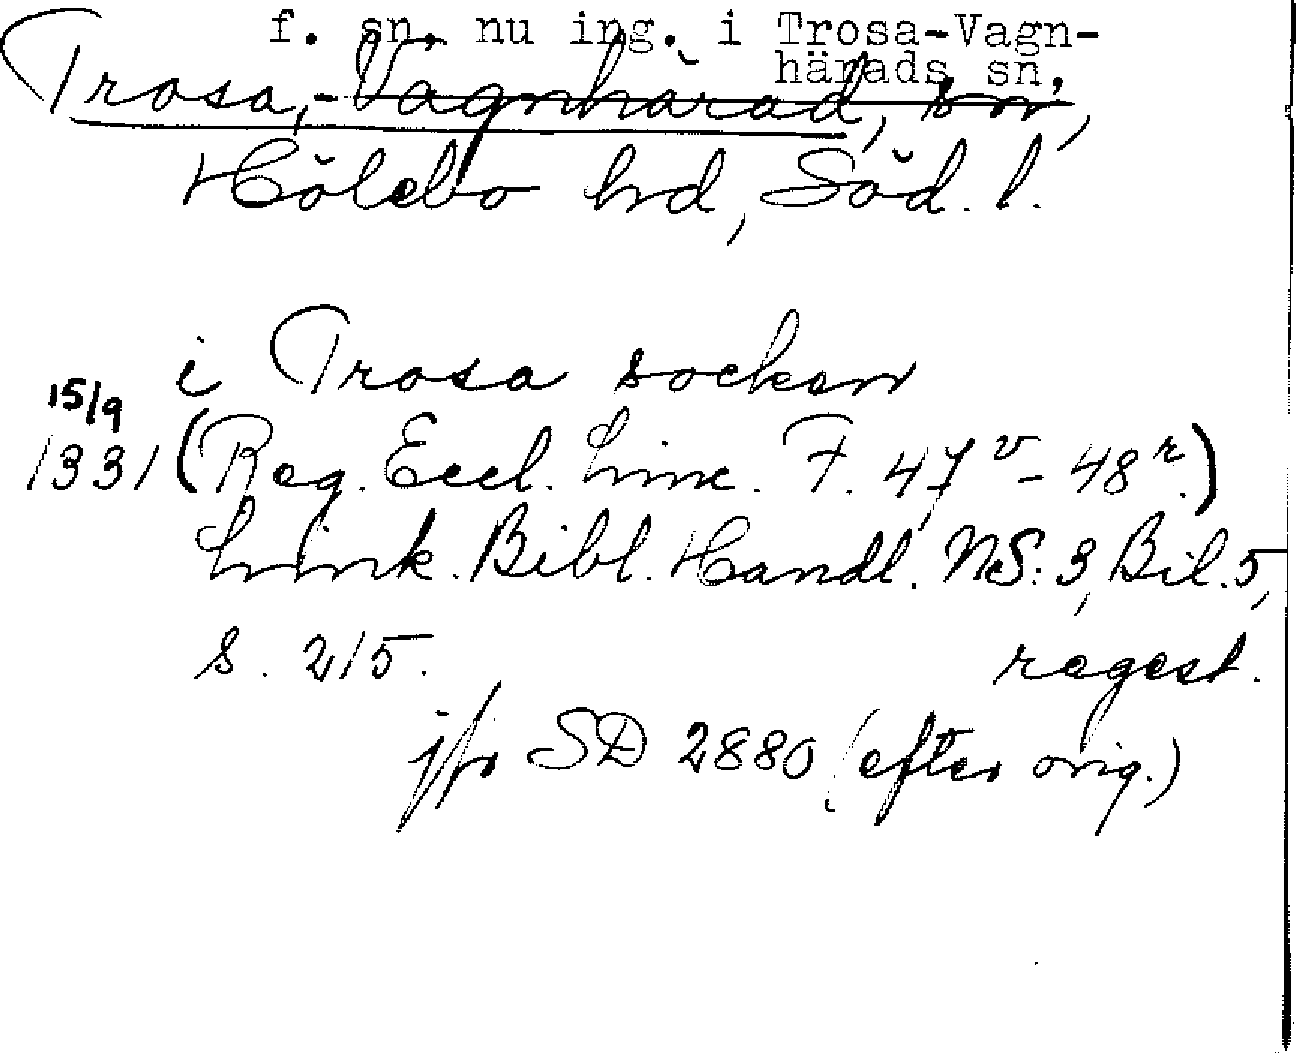 f. sn. nu ing. i Trosa-Vagn-
härads sn.
Trosa,-Vagnhärad, sn,
Hölebo hd, Söd. l.
i Trosa socken
15/9
1331 (Reg. Eccl. Linc. F. 47v - 48r.)
Link. Bibl. Handl. NS: 3, Bil. 5,
s. 215. regest.
jfr SD 2880 (efter orig.)